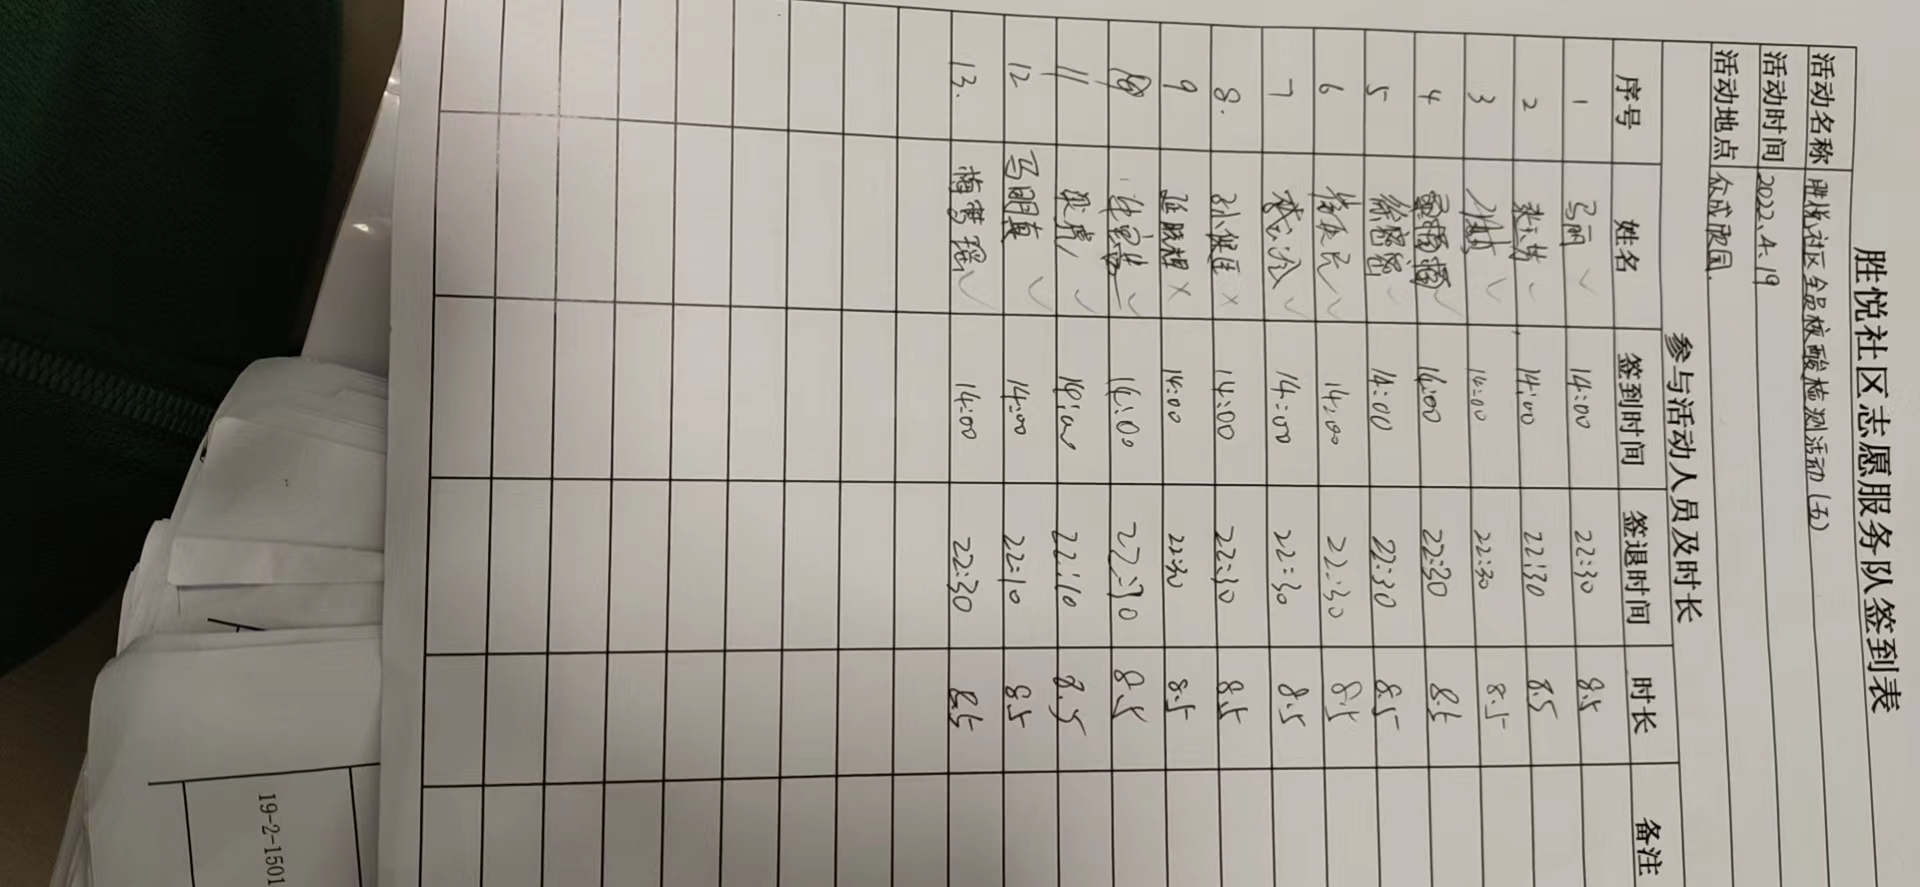 胜悦社区志愿服务队签到表
活动名称 胜悦社区全员核酸检测活动(五)
活动时间 2022.4.19
活动地点 众成欣园
参与活动人员及时长
序号 姓名 签到时间 签退时间 时长 备注
1 马丽 ✓ 14:00 22:30 8.5
2 ✓ 14:00 22:30 8.5
3 ✓ 14:00 22:30 8.5
4 ✓ 14:00 22:30 8.5
5 徐密密 14:00 22:30 8.5
6 ✓ 14:00 22:30 8.5
7 ✓ 14:00 22:30 8.5
8. × 14:00 22:30 8.5
9 × 14:00 22:30 8.5
10 ✓ 14:00 22:30 8.5
11 ✓ 14:00 22:10 8.5
12 马明真 ✓ 14:00 22:10 8.5
13. ✓ 14:00 22:30 8.5
19-2-1501